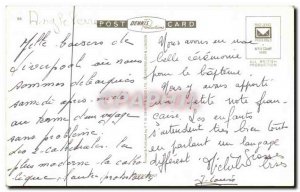 Angleterre
POST
DENNIS
CARD
Mille baisers de
Liverpool où nous
sommes débarqués
samedi après midi
au terme d'un voyage
sans problème.
des 2 cathédrales. La
plus moderne la catho-
lique, l'autre protestante
Nous avons eu une
belle cérémonie
pour le baptême.
Nous y avons apporté
une petite note fran-
çaise. Les enfants
s'entendent très bien tout
en parlant un langage
différent.
ALL BRITISH
PRODUCTION